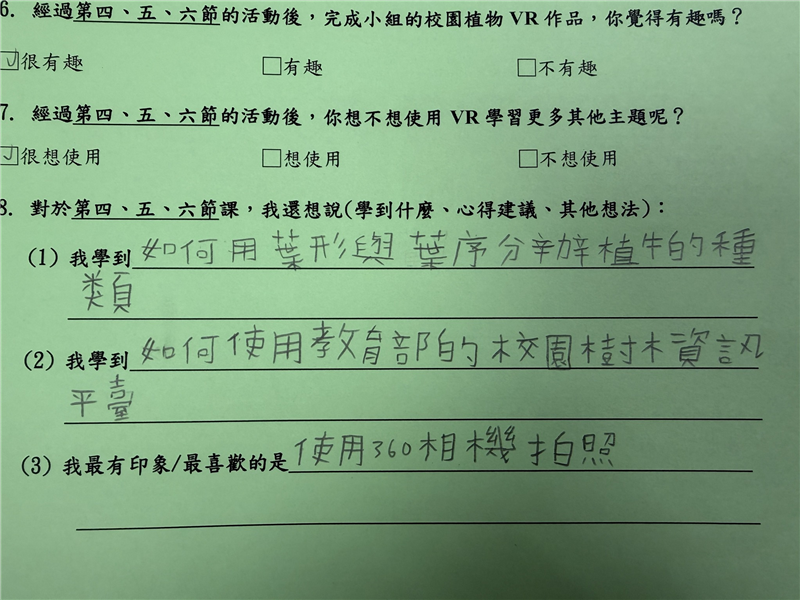 6. 經過第四、五、六節的活動後，完成小組的校園植物 VR 作品，你覺得有趣嗎？
☑很有趣 □有趣 □不有趣
7. 經過第四、五、六節的活動後，你想不想使用 VR 學習更多其他主題呢？
☑很想使用 □想使用 □不想使用
8. 對於第四、五、六節課，我還想說(學到什麼、心得建議、其他想法)：
(1) 我學到如何用葉形與葉序分辨植牛的種
類
(2) 我學到如何使用教育部的校園樹木資訊
平臺
(3) 我最有印象/最喜歡的是使用360相機拍照